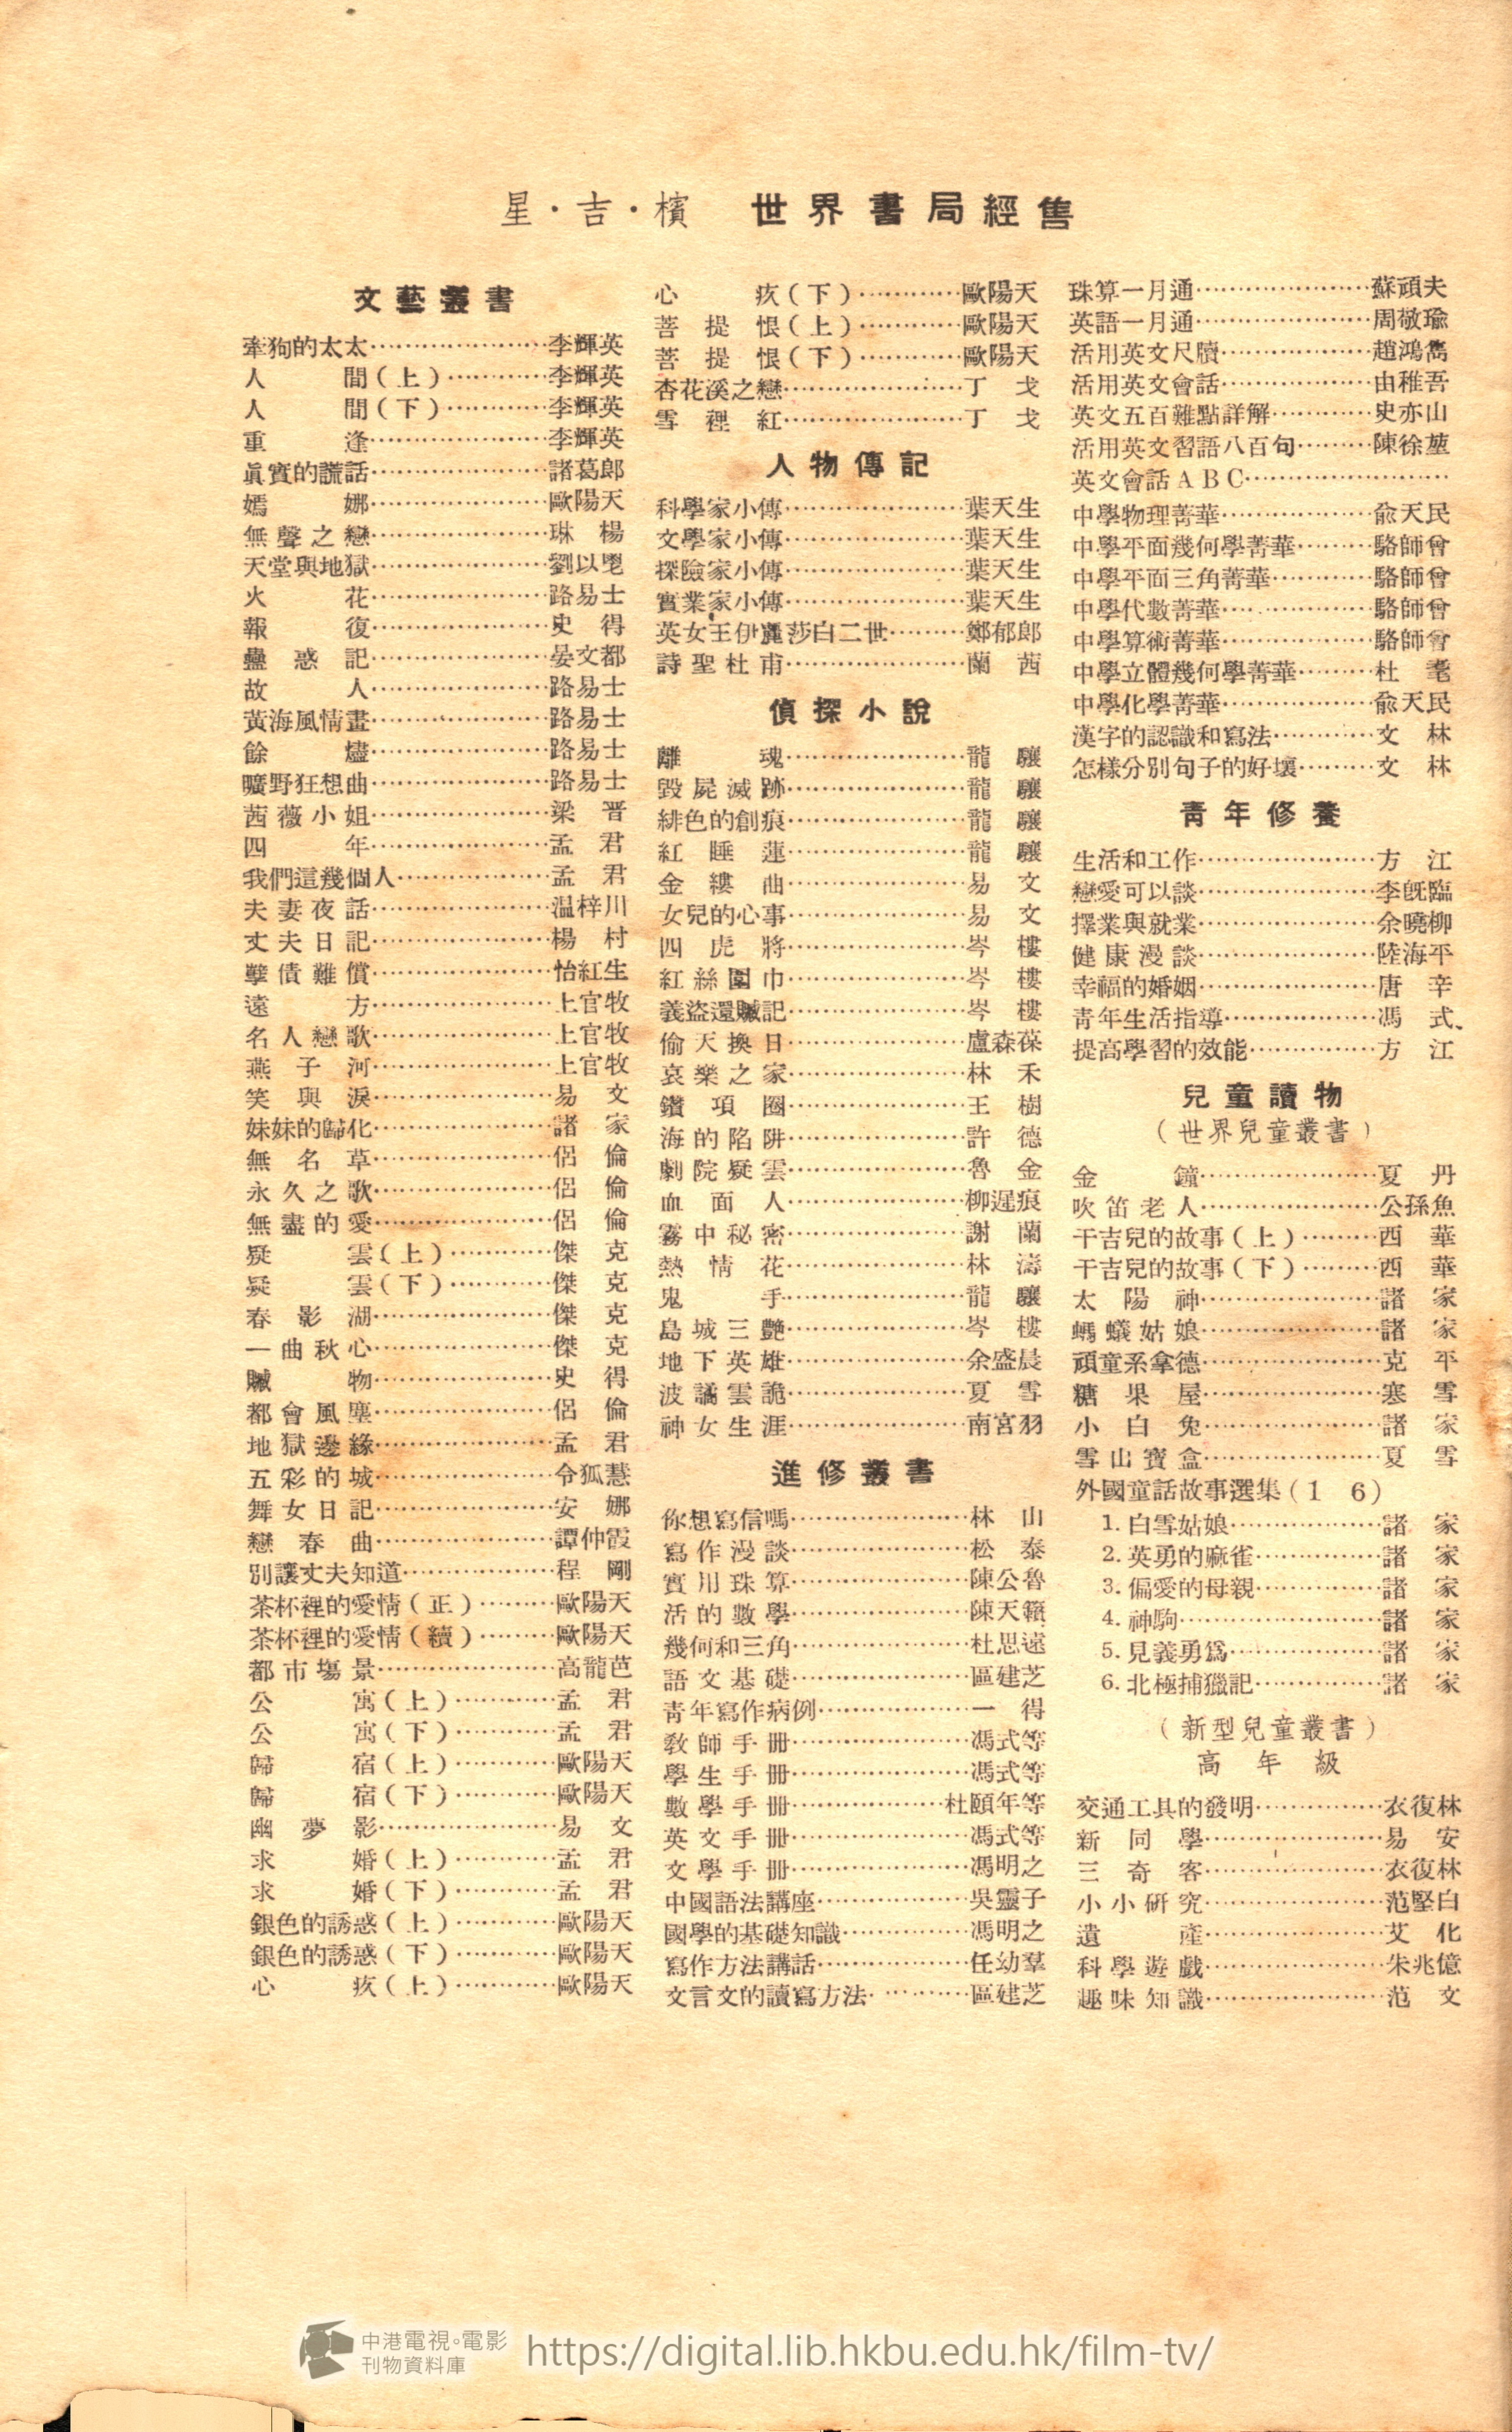 星・吉・檳　世界書局經售
文藝叢書
牽狗的太太…………………李輝英
人間(上)…………李輝英
人間(下)…………李輝英
重逢…………………李輝英
眞實的謊話…………………諸葛郎
嫣娜…………………歐陽天
無聲之戀…………………琳楊
天堂與地獄…………………劉以鬯
火花…………………路易士
報復…………………史得
蠱惑記…………………晏文都
故人…………………路易士
黃海風情畫…………………路易士
餘燼…………………路易士
曠野狂想曲…………………路易士
茜薇小姐…………………梁晋
四年…………………孟君
我們這幾個人………………孟君
夫妻夜話…………………温梓川
丈夫日記…………………楊村
孽債難償…………………怡紅生
遠方…………………上官牧
名人戀歌…………………上官牧
燕子河…………………上官牧
笑與淚…………………易文
妹妹的歸化…………………諸家
無名草…………………侶倫
永久之歌…………………侶倫
無盡的愛…………………侶倫
疑雲(上)…………傑克
疑雲(下)…………傑克
春影湖…………………傑克
一曲秋心…………………傑克
贓物…………………史得
都會風塵…………………侶倫
地獄邊緣…………………孟君
五彩的城…………………令狐慧
舞女日記…………………安娜
戀春曲…………………譚仲霞
別讓丈夫知道………………程剛
茶杯裡的愛情(正)………歐陽天
茶杯裡的愛情(續)………歐陽天
都市塲景…………………高龍芭
公寓(上)…………孟君
公寓(下)…………孟君
歸宿(上)…………歐陽天
歸宿(下)…………歐陽天
幽夢影…………………易文
求婚(上)…………孟君
求婚(下)…………孟君
銀色的誘惑(上)…………歐陽天
銀色的誘惑(下)…………歐陽天
心疚(上)…………歐陽天
心疚(下)…………歐陽天
菩提恨(上)…………歐陽天
菩提恨(下)…………歐陽天
杏花溪之戀…………………丁戈
雪裡紅…………………丁戈
人物傳記
科學家小傳…………………葉天生
文學家小傳…………………葉天生
探險家小傳…………………葉天生
實業家小傳…………………葉天生
英女王伊麗莎白二世………鄭郁郎
詩聖杜甫…………………蘭茜
偵探小說
離魂…………………龍驤
毀屍滅跡…………………龍驤
緋色的創痕…………………龍驤
紅睡蓮…………………龍驤
金縷曲…………………易文
女兒的心事…………………易文
四虎將…………………岑樓
紅絲圍巾…………………岑樓
義盜還贓記…………………岑樓
偷天換日…………………盧森葆
哀樂之家…………………林禾
鑽項圈…………………王樹
海的陷阱…………………許德
劇院疑雲…………………魯金
血面人…………………柳遲痕
霧中秘密…………………謝蘭
熱情花…………………林濤
鬼手…………………龍驤
島城三艷…………………岑樓
地下英雄…………………余盛晨
波譎雲詭…………………夏雪
神女生涯…………………南宮羽
進修叢書
你想寫信嗎…………………林山
寫作漫談…………………松泰
實用珠算…………………陳公魯
活的數學…………………陳天籟
幾何和三角…………………杜思遠
語文基礎…………………區建芝
青年寫作病例………………一得
敎師手冊…………………馮式等
學生手冊…………………馮式等
數學手冊………………杜頤年等
英文手冊…………………馮式等
文學手冊…………………馮明之
中國語法講座………………吳靈子
國學的基礎知識……………馮明之
寫作方法講話………………任幼羣
文言文的讀寫方法…………區建芝
珠算一月通…………………蘇頑夫
英語一月通…………………周敬瑜
活用英文尺牘………………趙鴻雋
活用英文會話………………由稚吾
英文五百難點詳解…………史亦山
活用英文習語八百句………陳徐堃
英文會話ＡＢＣ……………………
中學物理菁華………………俞天民
中學平面幾何學菁華………駱師曾
中學平面三角菁華…………駱師曾
中學代數菁華………………駱師曾
中學算術菁華………………駱師曾
中學立體幾何學菁華………杜耄
中學化學菁華………………俞天民
漢字的認識和寫法…………文林
怎樣分別句子的好壞………文林
靑年修養
生活和工作…………………方江
戀愛可以談…………………李旣臨
擇業與就業…………………余曉柳
健康漫談…………………陸海平
幸福的婚姻…………………唐辛
靑年生活指導………………馮式
提高學習的效能……………方江
兒童讀物
(世界兒童叢書)
金鐘…………………夏丹
吹笛老人…………………公孫魚
干吉兒的故事(上)………西華
干吉兒的故事(下)………西華
太陽神…………………諸家
螞蟻姑娘…………………諸家
頑童系拿德…………………克平
糖果屋…………………寒雪
小白兔…………………諸家
雪山寶盒…………………夏雪
外國童話故事選集(1　6)
1. 白雪姑娘………………諸家
2. 英勇的麻雀……………諸家
3. 偏愛的母親……………諸家
4. 神駒……………………諸家
5. 見義勇爲………………諸家
6. 北極捕獵記……………諸家
(新型兒童叢書)
高年級
交通工具的發明……………衣復林
新同學…………………易安
三奇客…………………衣復林
小小研究…………………范堅白
遺產…………………艾化
科學遊戲…………………朱兆億
趣味知識…………………范文
中港電視。電影
刊物資料庫
https://digital.lib.hkbu.edu.hk/film-tv/